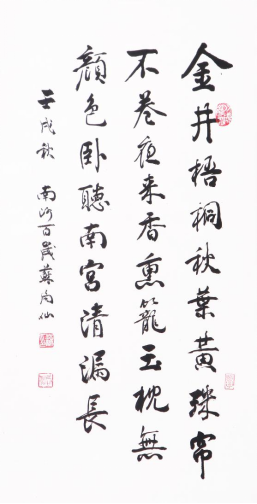 金井梧桐秋葉黃珠帘
不卷夜来香熏籠玉枕無
顏色臥聽南宮清漏長
壬戌秋 南沙百歲蘇局仙